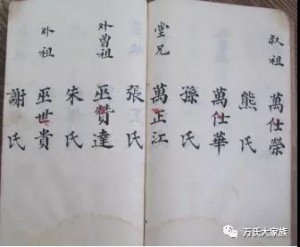 叔祖 萬仕榮
熊氏
萬仕華
孫氏
堂兄 萬正江
張氏
外曾祖 巫贊達
朱氏
外祖 巫世貴
謝氏
万氏大家族